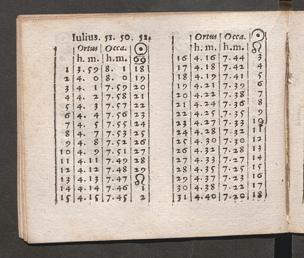 Iulius. 51. 50. 52.
Ortus Occa. ☉
h. m. h. m. ♋
1 3. 59 8. 1 18
2 4. 0 8. 0 19
3 4. 1 7. 59 20
4 4. 2 7. 58 21
5 4. 7. 22
6 4. 4 7. 56 23
7 4. 5 7. 55 24
8 4. 7 7. 53 25
9 4. 8 7. 52 26
10 4. 9 7. 51 27
11 4. 11 7. 49 28
12 4. 12 7. 48 29
13 4. 7. ♌
14 4. 14 7. 46 1
15 4. 15 7. 45 2
Ortus Occa. ☉
h. m. h. m. ♌
16 4. 16 7. 44 3
17 4. 18 7. 42 4
18 4. 19 7. 41 5
19 4. 21 7. 39 6
20 4. 22 7. 38 7
21 4. 24 7. 36 8
22 4. 25 7. 35 9
23 4. 27 7. 33
24 4. 28 7. 32 11
25 4. 30 7. 30 12
26 4. 32 7. 28 13
27 4. 33 7. 27 14
28 4. 35 7. 25 15
29 4. 37 7. 23 16
30 4. 38 7. 22 17
31 4. 40 7. 20 18